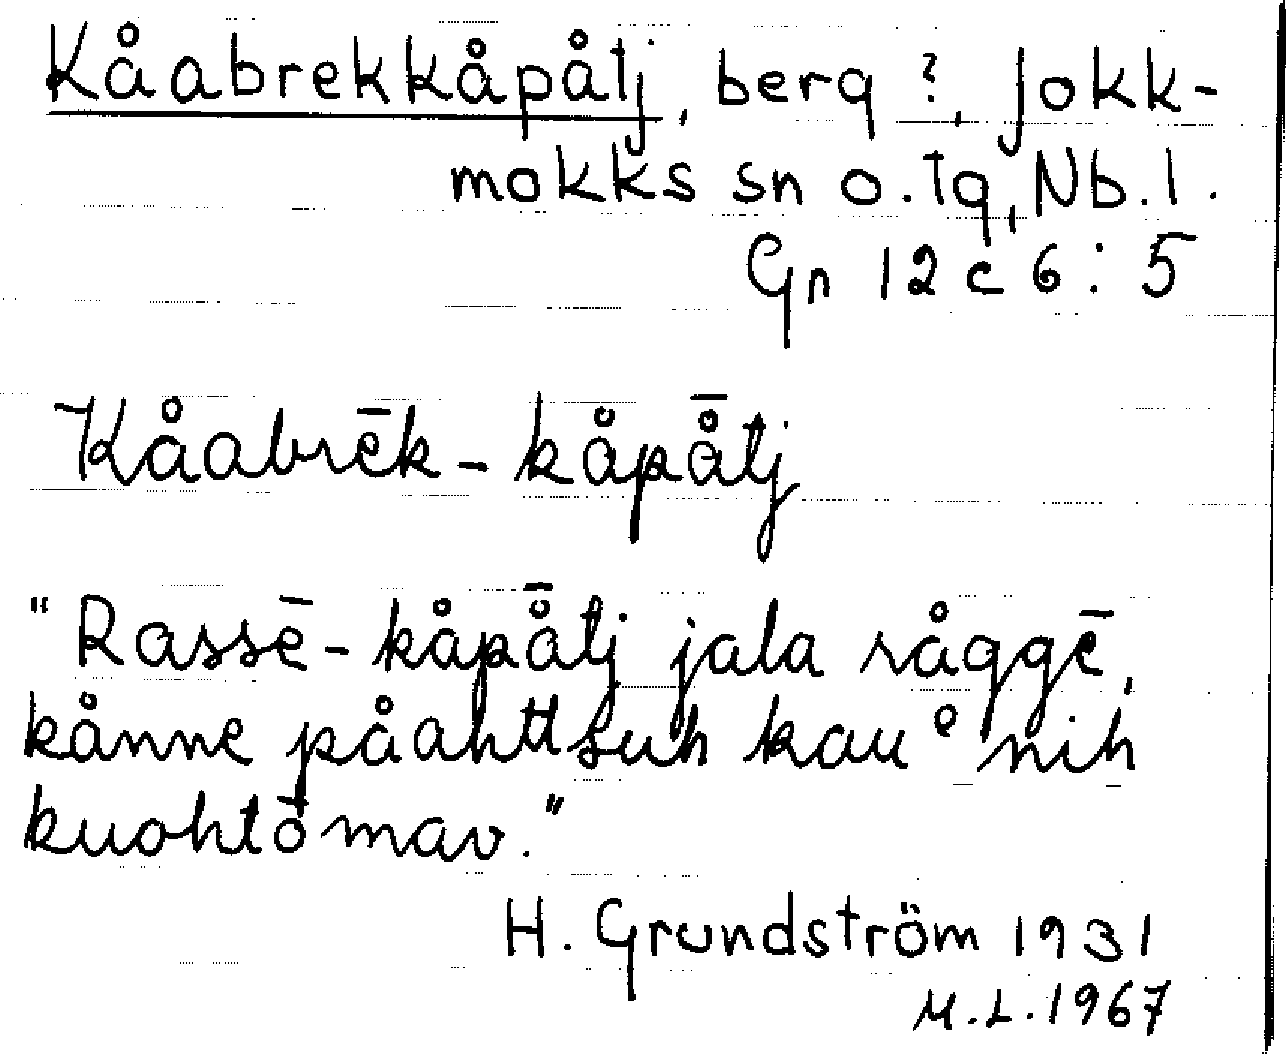 Kåabrekkåpåtj, berg ?, Jokk-
mokks sn o. tg, Nb. l.
Gn 12 c 6:5
Kåabrēk-kåpå̄tj
"Rassē-kåpå̄tj jala råggē,
kånne påahttsuh kauᵉnih
kuohtōmav."
H. Grundström 1931
M.L. 1967